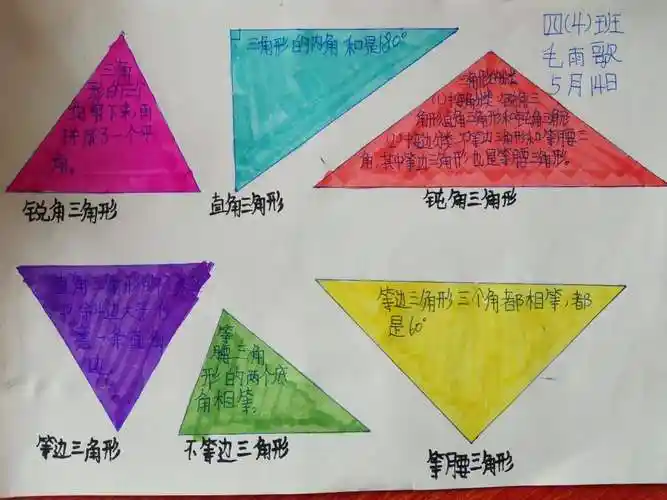 四(4)班
毛雨歌
5月14日
三角
形的三个
角剪下来,再
拼成了一个平
角。
锐角三角形
三角形的内角和是180°
直角三角形
三角形的分类
(1)按角分类:锐角三
角形直角三角形和钝角三角形
(2)按边分类:不等边三角形和等腰三
角,其中等边三角形也是等腰三角形。
钝角三角形
直角三角形的
边大于
第一条
边
等边三角形
等
腰三角
形的两个底
角相等。
不等边三角形
等边三角形三个角都相等,都
是60°
等腰三角形